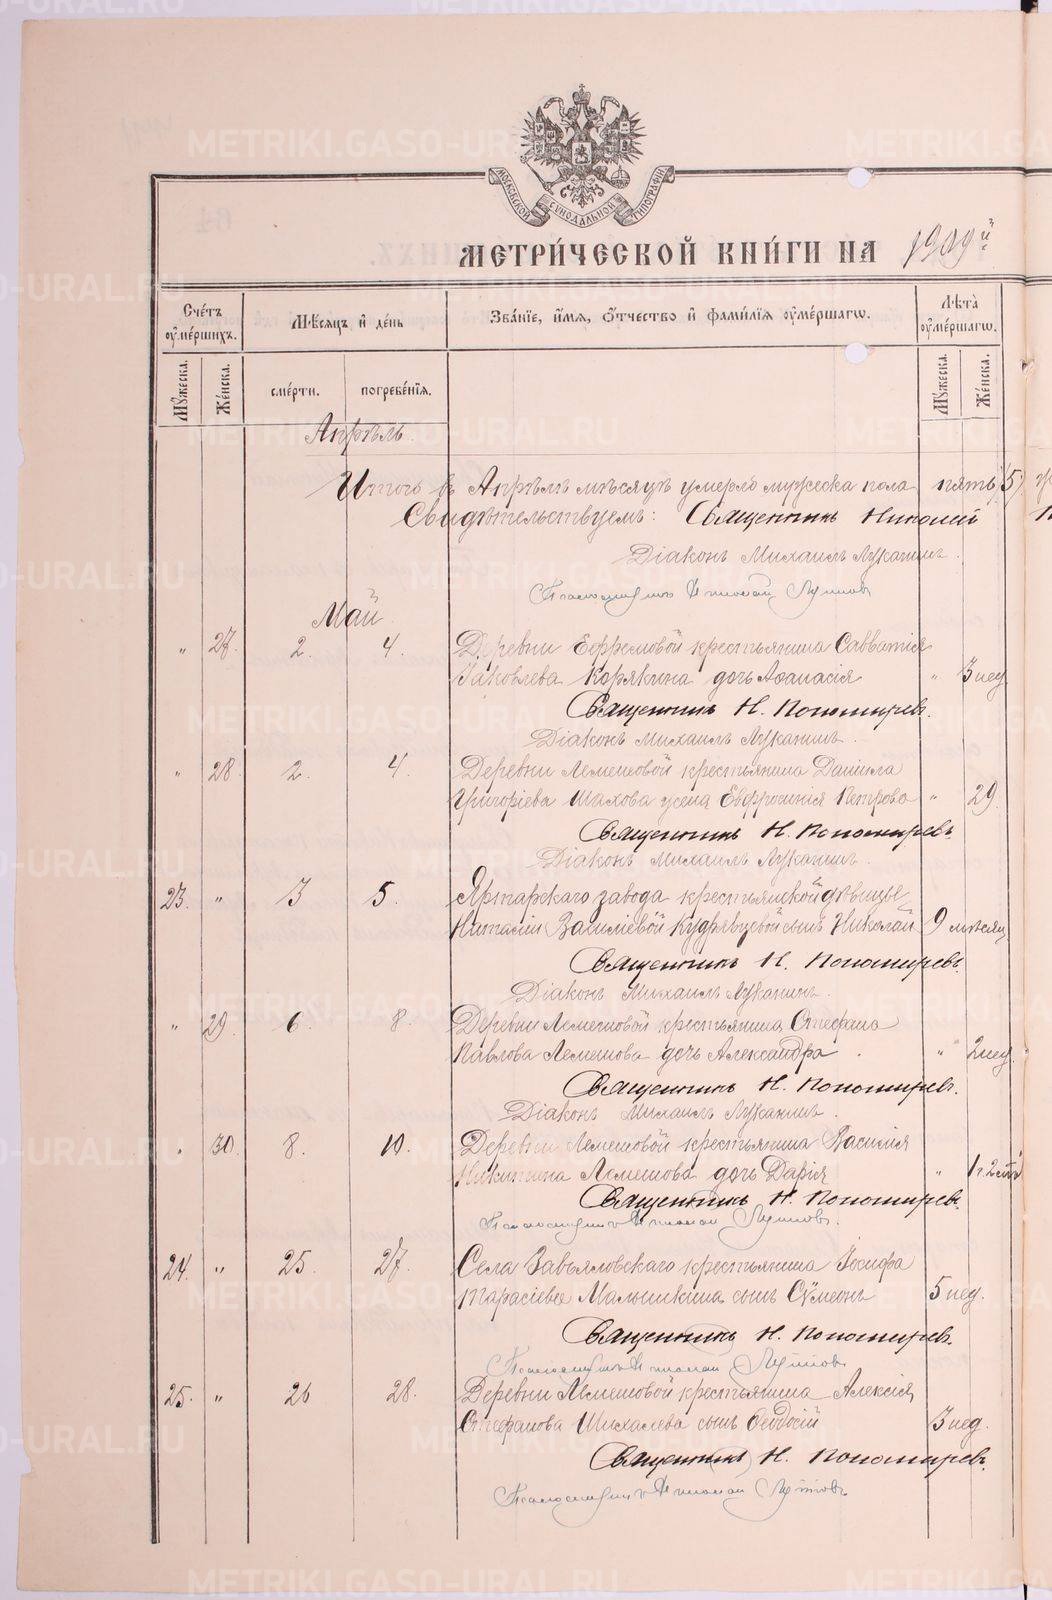 МОСКОВСКОЙ СѴНОДАЛЬНОЙ ТИПОГРАФІИ
МЕТРИ́ЧЕСКОЙ КНИ́ГИ НА 1909й
Сче́тъ оуме́ршихъ. Мѣ́сяцъ и де́нь Зва́ніе, и́мя, о́тчество и фами́лія оуме́ршаго. Лѣта̀ оуме́ршаго.
Му́жеска. Же́нска. сме́рти. погребе́нія. Му́жеска. Же́нска.
Апрѣль.
Итого въ Апрѣлѣ мѣсяцѣ умерло мужеска пола пять (5)
Свидѣтельствуемъ: Священникъ Николай
Діаконъ Михаилъ Луканинъ.
Псаломщикъ Николай Лупповъ
Май
„ 27. 2. 4. Деревни Ефремовой крестьянина Савватія
Іаковлева Корякина дочь Аѳанасія „ 3 нед
Священникъ Н. Пономаревъ.
Діаконъ Михаилъ Луканинъ.
„ 28. 2. 4. Деревни Лемешовой крестьянина Даніила
Григоріева Шахова жена Евфросинія Петрова „ 29.
Священникъ Н. Пономаревъ.
Діаконъ Михаилъ Луканинъ.
23. „ 3 5. завода крестьянской дѣвицы
Наталіи Василіевой Кудрявцевой сынъ Николай 9 мѣсяц
Священникъ Н. Пономаревъ.
Діаконъ Михаилъ Луканинъ.
„ 29. 6. 8. Деревни Лемешовой крестьянина Стефана
Павлова Лемешова дочь Александра. „ 2 нед.
Священникъ Н. Пономаревъ.
Діаконъ Михаилъ Луканинъ.
„ 30. 8. 10. Деревни Лемешовой крестьянина Василія
Никитина Лемешова дочь Дарія „
Священникъ Н. Пономаревъ.
Псаломщикъ Николай Лупповъ.
24. „ 25. 27. Села Завьяловскаго крестьянина Іосифа
Тарасіева Малышкина сынъ Сѵмеонъ 5 нед.
Священникъ Н. Пономаревъ.
Псаломщикъ Николай Лупповъ
25. „ 26 28. Деревни Лемешовой крестьянина Алексія
Стефанова Шихалева сынъ Ѳеодосій 3 нед.
Священникъ Н. Пономаревъ.
Псаломщикъ Николай Лупповъ
METRIKI.GASO-URAL.RU